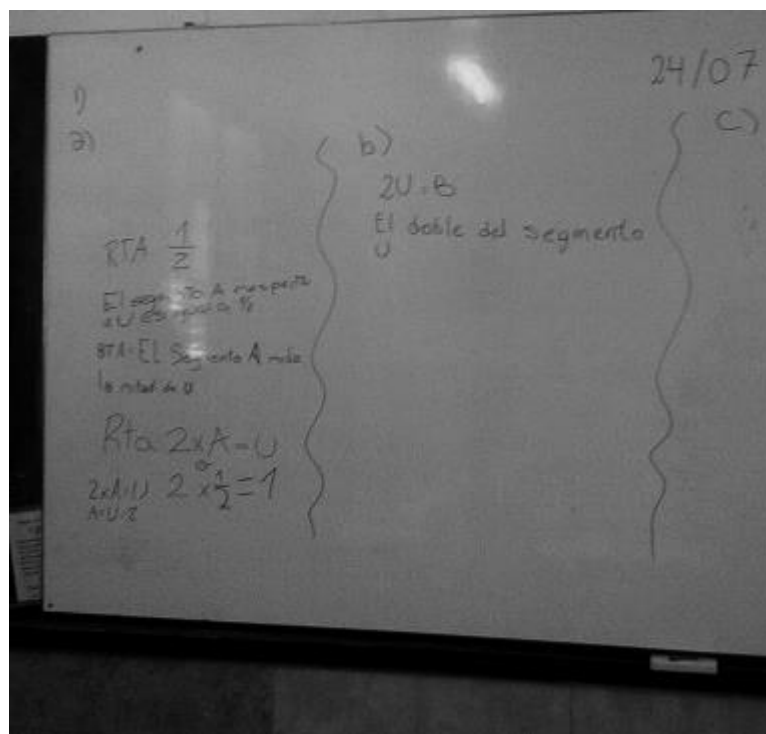 24/07
1)
a)
RTA 1/2
El segmento A respecto
a U es igual a 1/2
RTA: EL Segmento A mide
la mitad de U
Rta 2xA=U
2xA=U 2 x 1/2 = 1
A=U:2
b)
2U=B
El doble del segmento
U
c)